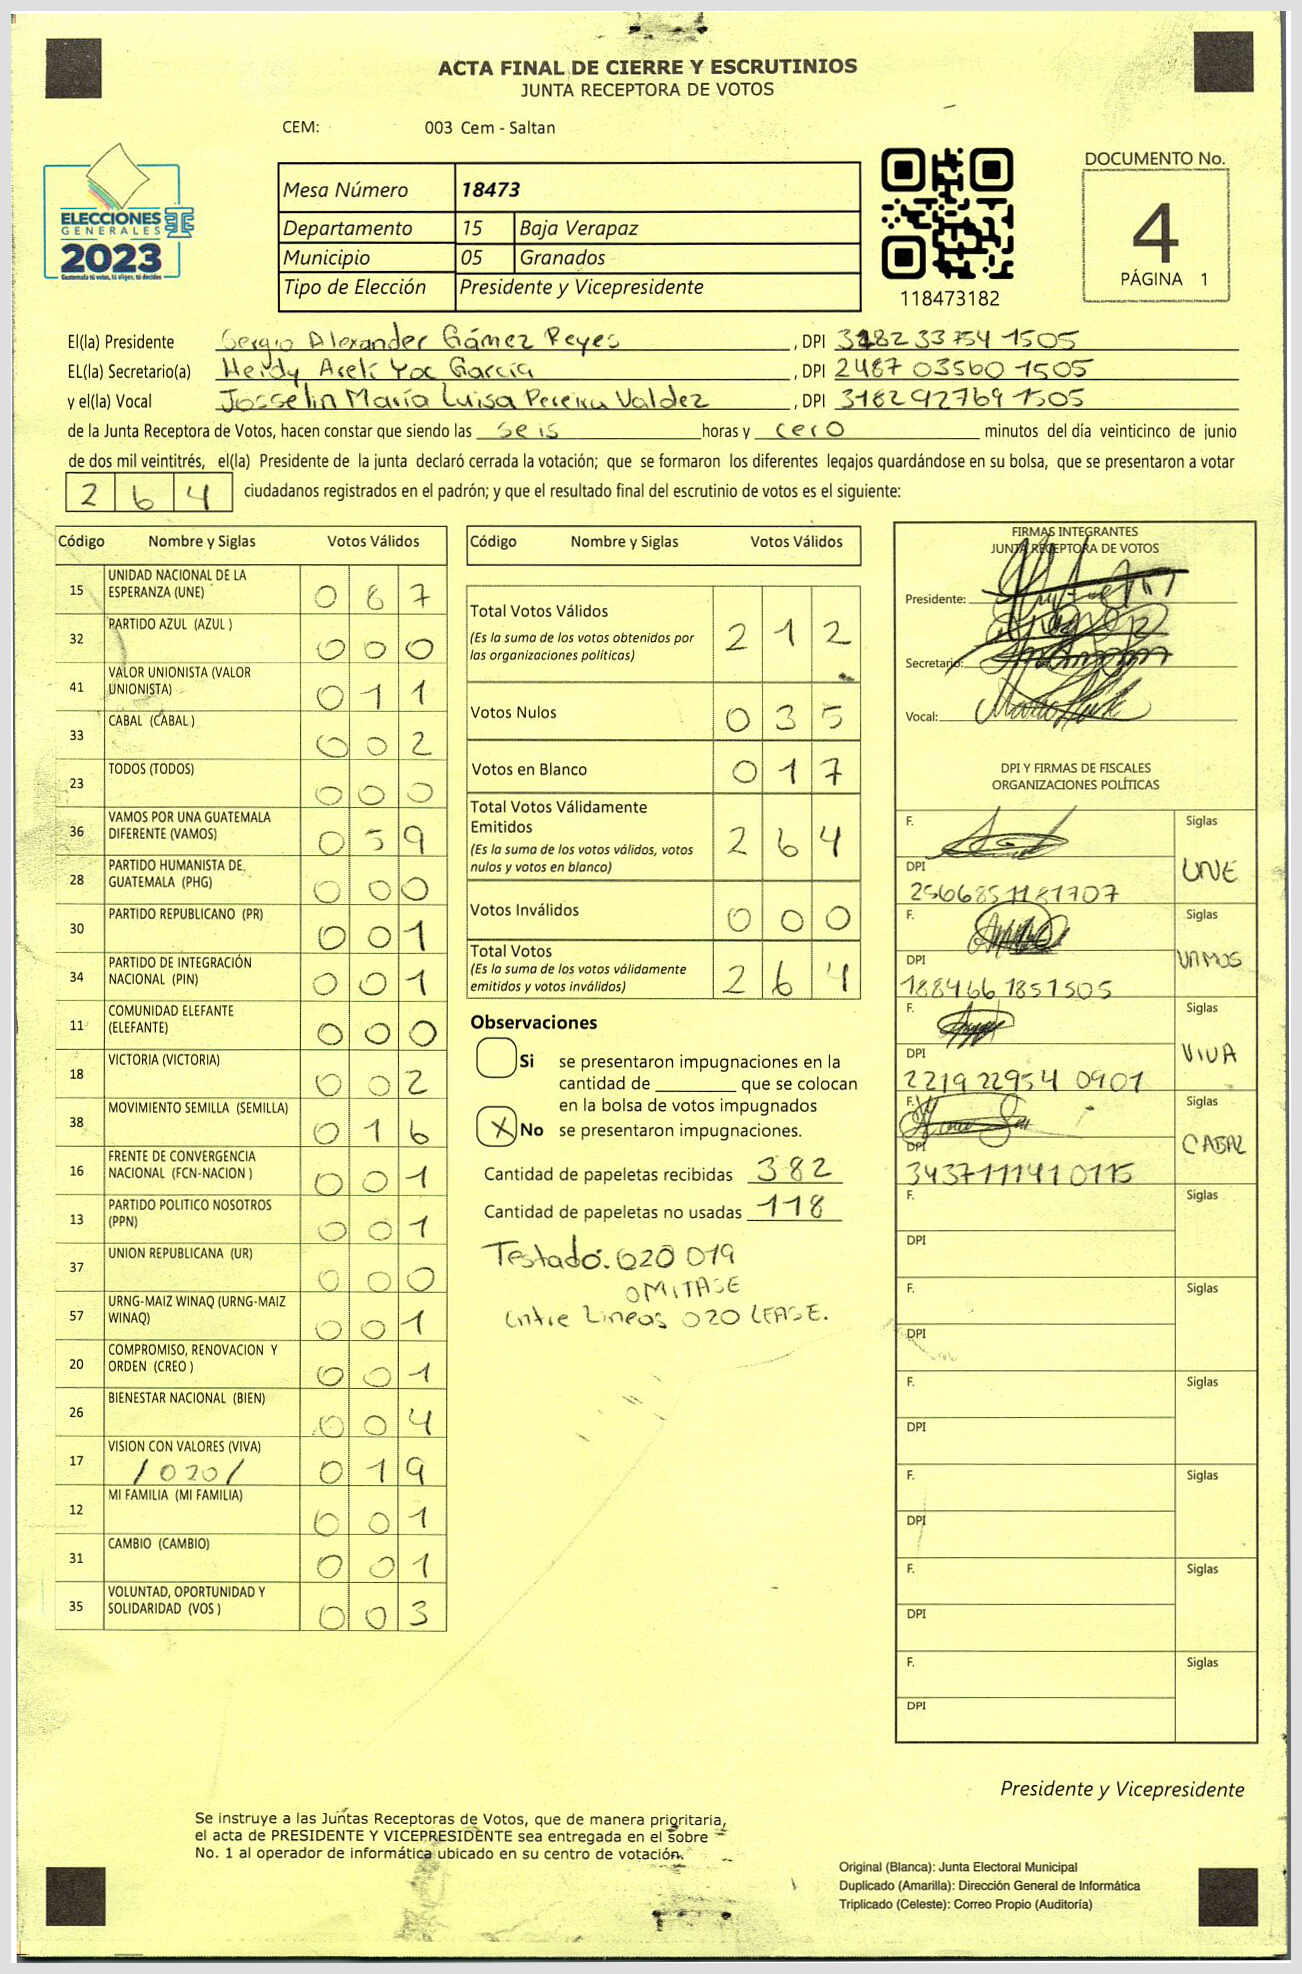 ACTA FINAL DE CIERRE Y ESCRUTINIOS
JUNTA RECEPTORA DE VOTOS
CEM: 003 Cem - Saltan
ELECCIONES
GENERALES
2023
Guatemala tú votas, tú eliges, tú decides
Mesa Número 18473
Departamento 15 Baja Verapaz
Municipio 05 Granados
Tipo de Elección Presidente y Vicepresidente
118473182
DOCUMENTO No.
4
PÁGINA 1
El(la) Presidente Sergio Alexander Gámez Reyes, DPI 3282 33754 1505
EL(la) Secretario(a) Heidy Areli Yoc García, DPI 2487 03560 1505
y el(la) Vocal Josselin María Luisa Pereira Valdez, DPI 3182 92769 1505
de la Junta Receptora de Votos, hacen constar que siendo las seis horas y cero minutos del día veinticinco de junio
de dos mil veintitrés, el(la) Presidente de la junta declaró cerrada la votación; que se formaron los diferentes legajos guardándose en su bolsa, que se presentaron a votar
264 ciudadanos registrados en el padrón; y que el resultado final del escrutinio de votos es el siguiente:
Código Nombre y Siglas Votos Válidos
15 UNIDAD NACIONAL DE LA ESPERANZA (UNE) 087
32 PARTIDO AZUL (AZUL ) 000
41 VALOR UNIONISTA (VALOR UNIONISTA) 011
33 CABAL (CABAL ) 002
23 TODOS (TODOS) 000
36 VAMOS POR UNA GUATEMALA DIFERENTE (VAMOS) 059
28 PARTIDO HUMANISTA DE GUATEMALA (PHG) 000
30 PARTIDO REPUBLICANO (PR) 001
34 PARTIDO DE INTEGRACIÓN NACIONAL (PIN) 001
11 COMUNIDAD ELEFANTE (ELEFANTE) 000
18 VICTORIA (VICTORIA) 002
38 MOVIMIENTO SEMILLA (SEMILLA) 016
16 FRENTE DE CONVERGENCIA NACIONAL (FCN-NACION ) 001
13 PARTIDO POLITICO NOSOTROS (PPN) 001
37 UNION REPUBLICANA (UR) 000
57 URNG-MAIZ WINAQ (URNG-MAIZ WINAQ) 001
20 COMPROMISO, RENOVACION Y ORDEN (CREO ) 001
26 BIENESTAR NACIONAL (BIEN) 004
17 VISION CON VALORES (VIVA) /020/ 019
12 MI FAMILIA (MI FAMILIA) 001
31 CAMBIO (CAMBIO) 001
35 VOLUNTAD, OPORTUNIDAD Y SOLIDARIDAD (VOS ) 003
Código Nombre y Siglas Votos Válidos
Total Votos Válidos 212
(Es la suma de los votos obtenidos por
las organizaciones políticas)
Votos Nulos 035
Votos en Blanco 017
Total Votos Válidamente
Emitidos 264
(Es la suma de los votos válidos, votos
nulos y votos en blanco)
Votos Inválidos 000
Total Votos 264
(Es la suma de los votos válidamente
emitidos y votos inválidos)
Observaciones
Si se presentaron impugnaciones en la
cantidad de ________ que se colocan
en la bolsa de votos impugnados
X No se presentaron impugnaciones.
Cantidad de papeletas recibidas 382
Cantidad de papeletas no usadas 118
Testado: 020 019
OMITASE
Entre Lineas 020 LEASE.
FIRMAS INTEGRANTES
JUNTA RECEPTORA DE VOTOS
Presidente:
Secretario:
Vocal:
DPI Y FIRMAS DE FISCALES
ORGANIZACIONES POLÍTICAS
F. Siglas
UNE
DPI
2566851181707
F. Siglas
VAMOS
DPI
1884661851505
F. Siglas
VIVA
DPI
2219 22954 0901
F. Siglas
CABAL
DPI
3437111410115
F. Siglas
DPI
F. Siglas
DPI
F. Siglas
DPI
F. Siglas
DPI
F. Siglas
DPI
F. Siglas
DPI
Presidente y Vicepresidente
Se instruye a las Juntas Receptoras de Votos, que de manera prioritaria,
el acta de PRESIDENTE Y VICEPRESIDENTE sea entregada en el sobre
No. 1 al operador de informática ubicado en su centro de votación.
Original (Blanca): Junta Electoral Municipal
Duplicado (Amarilla): Dirección General de Informática
Triplicado (Celeste): Correo Propio (Auditoría)